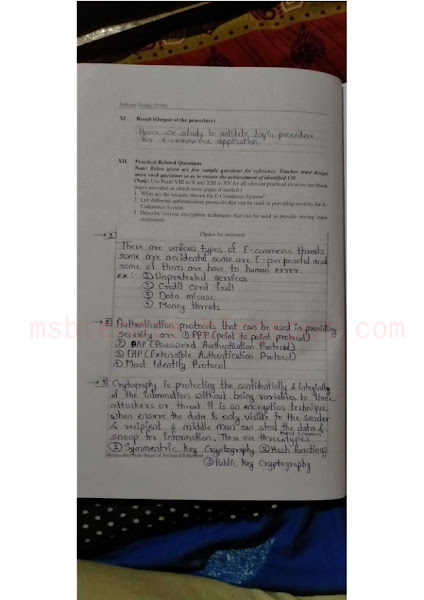 Software Testing (22518)
XI. Result (Output of the procedure)
Hence we study to validate login procedure
for e-commerce application.
XII. Practical Related Questions
Note: Below given are few sample questions for reference. Teacher must design
more such questions so as to ensure the achievement of identified CO.
(Note: Use Point VIII to X and XIII to XV for all relevant practical exercise use blank
pages provided or attach more pages if needed.)
1. What are the security threats for E-Commerce System?
2. List different authentication protocols that can be used in providing security for E-
Commerce System.
3. Describe various encryption techniques that can be used to provide strong login
credentials.
(Space for answers)
1
There are various types of E-commerce threats
some are accidental some are purposeful and
some of them are have to human error.
ex: ① Unprotected services
② Credit card fault
③ Data misuse
④ Money threats
2 Authentication protocols that can be used in providing
security are ① PPP (point to point protocol)
② PAP (Password Authentication Protocol)
③ EAP (Extensible Authentication Protocol)
④ Most Identity Protocol
3 Cryptography is protecting the & integrity
of the information without being variables to those
attackers or threat it is an encryption technique
when ensure the data is only visible to the sender
& recipient & middle man can steal the data &
snoop for information. There are three types
① Symmetric Key Cryptography ② Hash Functions
Maharashtra State Board of Technical Education
③ Public Key Cryptography